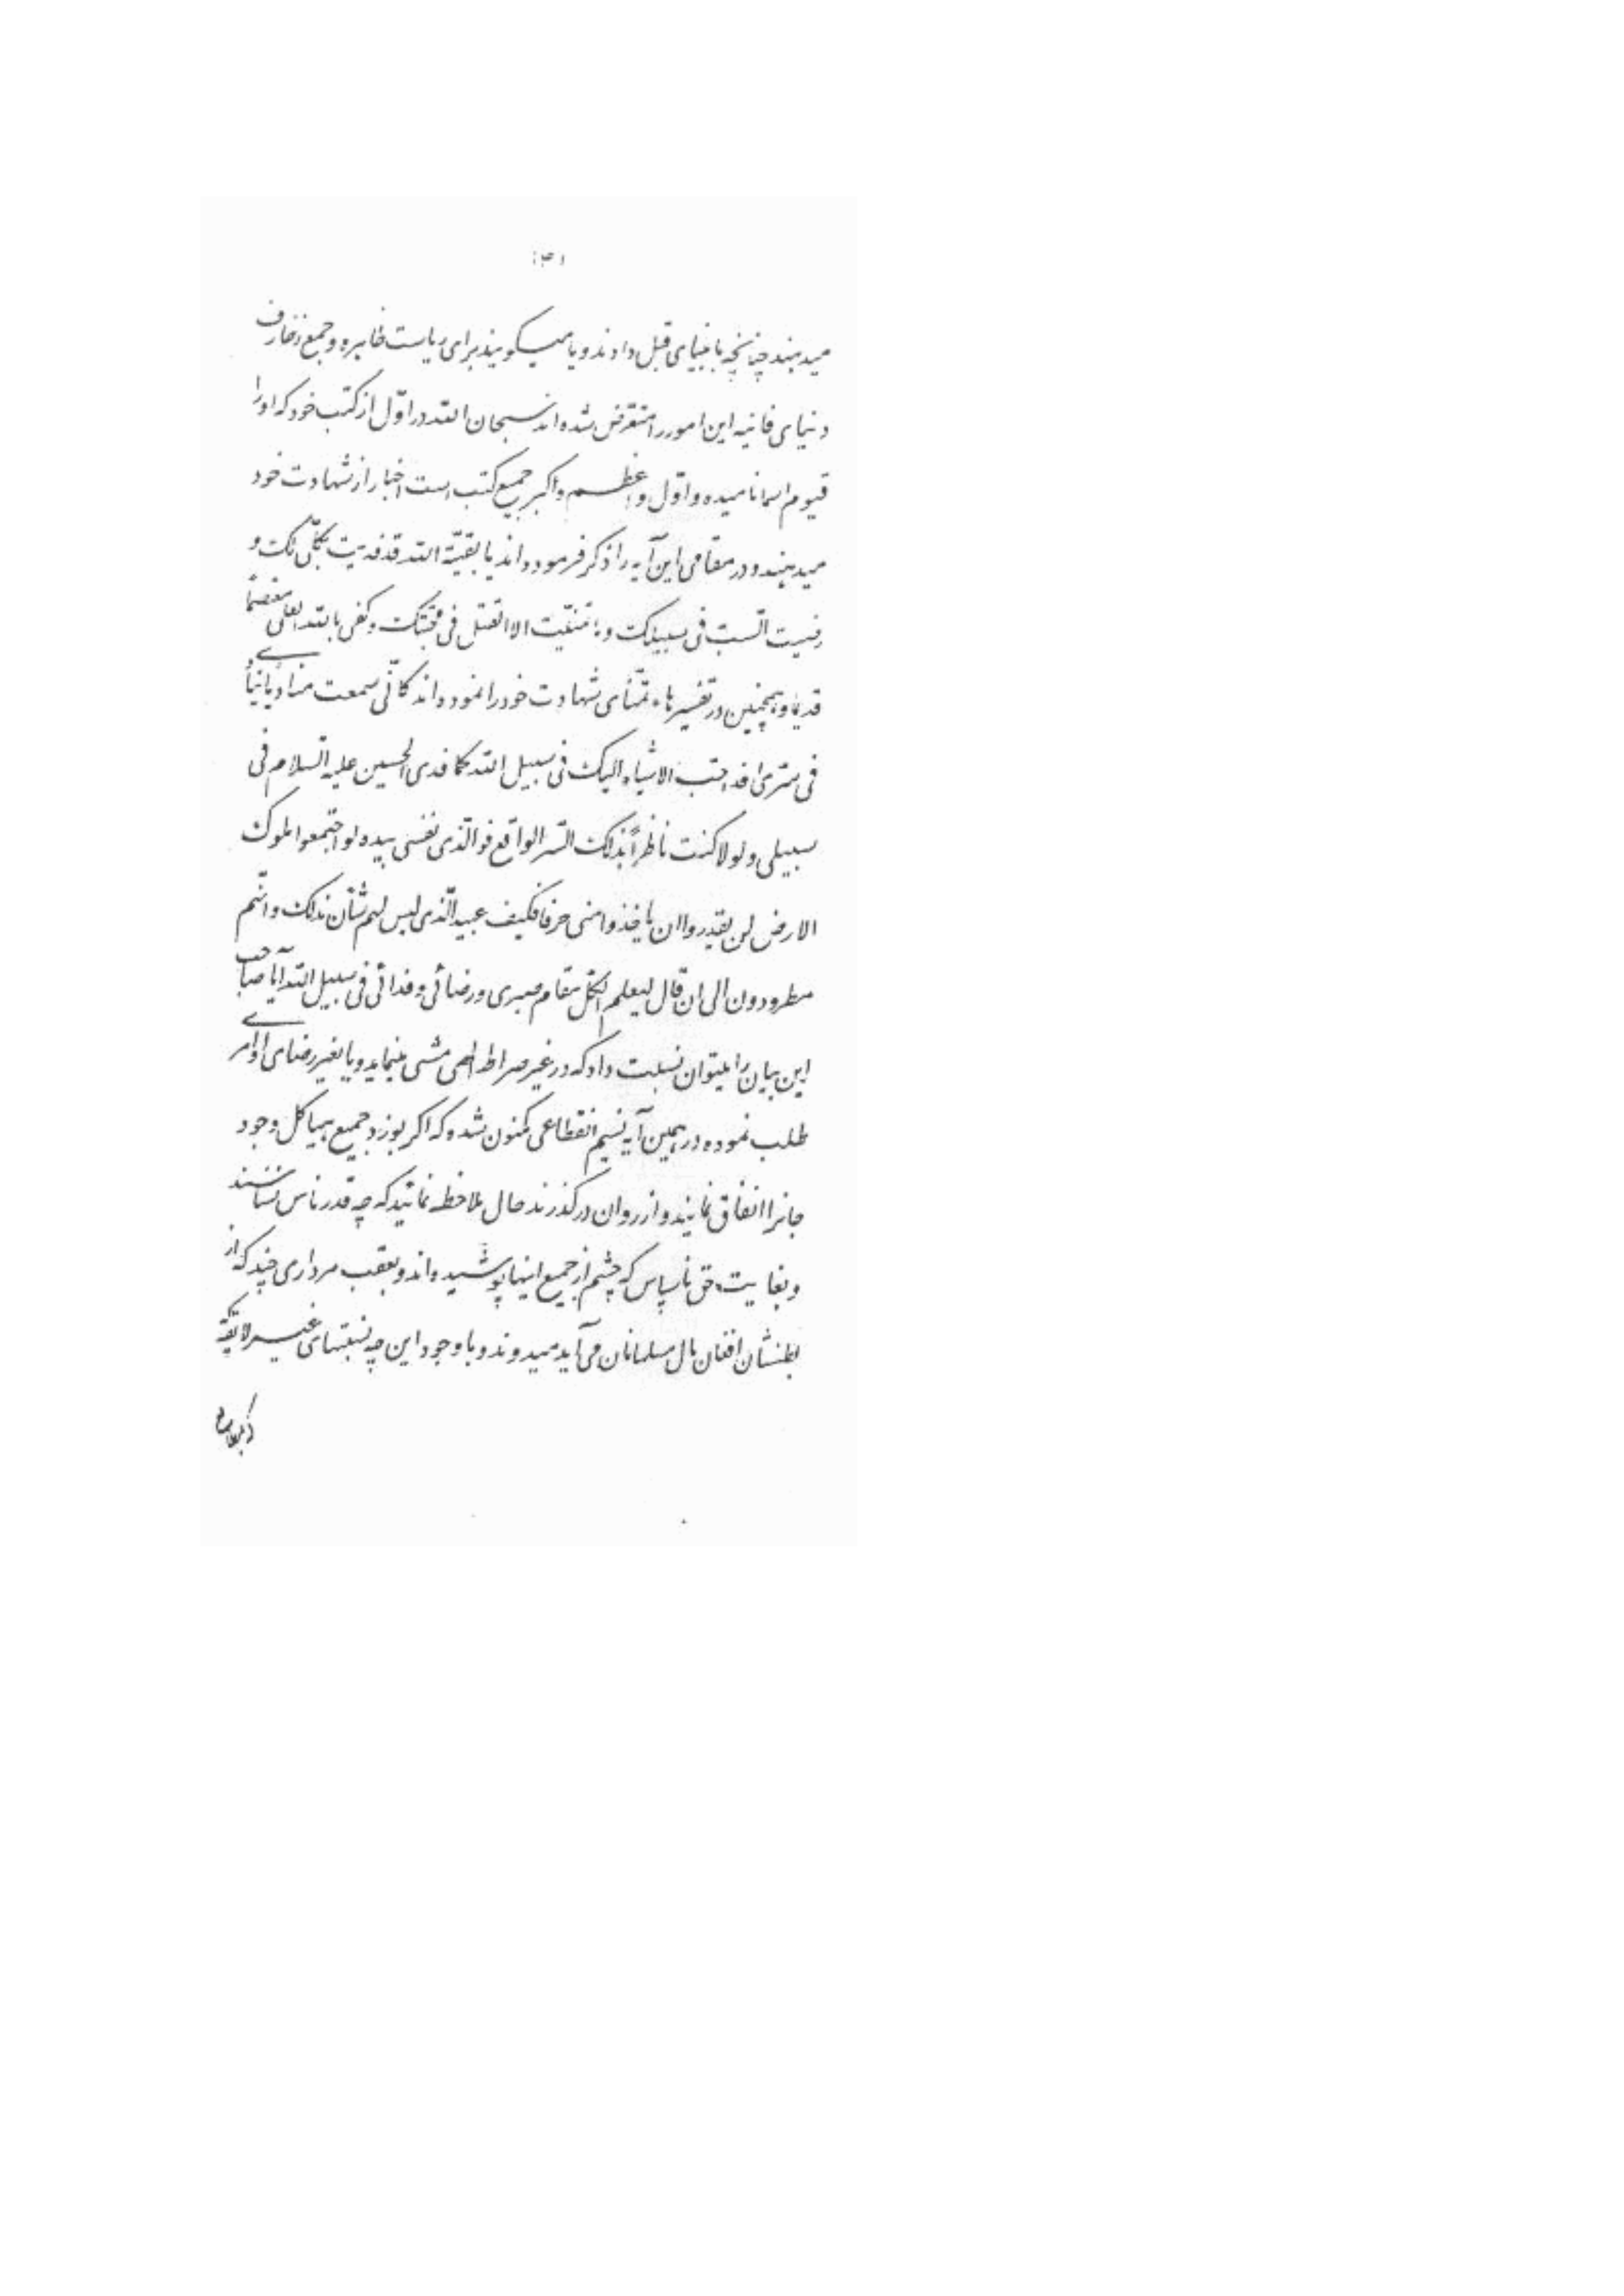 ۱۳۱
میدهند چنانچه بانبیای قبل دادند و یا میگویند برای ریاست ظاهره و جمع زخارف
دنیای فانیه این امور را متعرّض شده‌اند سبحان الله در اوّل از کتب خود که او را
قیوم اسما نامیده و اوّل و اعظم و اکبر جمیع کتب است اخبار از شهادت خود
میدهند و در مقامی این آیه را ذکر فرموده‌اند یا بقیّة الله قد فدیت بکلّی لک و
رضیت السّبّ فی سبیلک و ما تمنّیت الا القتل فی محبّتک و کفی بالله العلی معتصماً
قدیما و همچنین در تفسیر هاء تمنّای شهادت خود را نموده‌اند کانّی سمعت منادیاً ینادی
فی سرّی افد احبّ الاشیاء الیک فی سبیل الله کما فدی الحسین علیه السّلام فی
سبیلی و لولا کنت ناظراً بذلک السّر الواقع فو الّذی نفسی بیده لو اجتمعوا ملوک
الارض لن یقدروا ان یاخذوا منی حرفا فکیف عبید الّذی لیس لهم شأن بذلک و انّهم
مطرودون الی ان قال لیعلم الکلّ مقام صبری و رضائی و فدائی فی سبیل الله آیا صاحب
این بیان را میتوان نسبت داد که در غیر صراط الهی مشی مینماید و یا بغیر رضای او امری
طلب نموده در همین آیه نسیم انقطاعی مکنون شده که اگر بوزد جمیع هیاکل وجود
جانرا انفاق نمایند و از روان درگذرند حال ملاحظه نمائید که چه قدر ناس نسناسند
و بغایت حق ناسپاس که چشم از جمیع اینها پوشیده‌اند و بعقب مرداری چند که از
بطنشان افغان مال مسلمانان می‌آید میدوند و با وجود این چه نسبتهای غیر لایقه